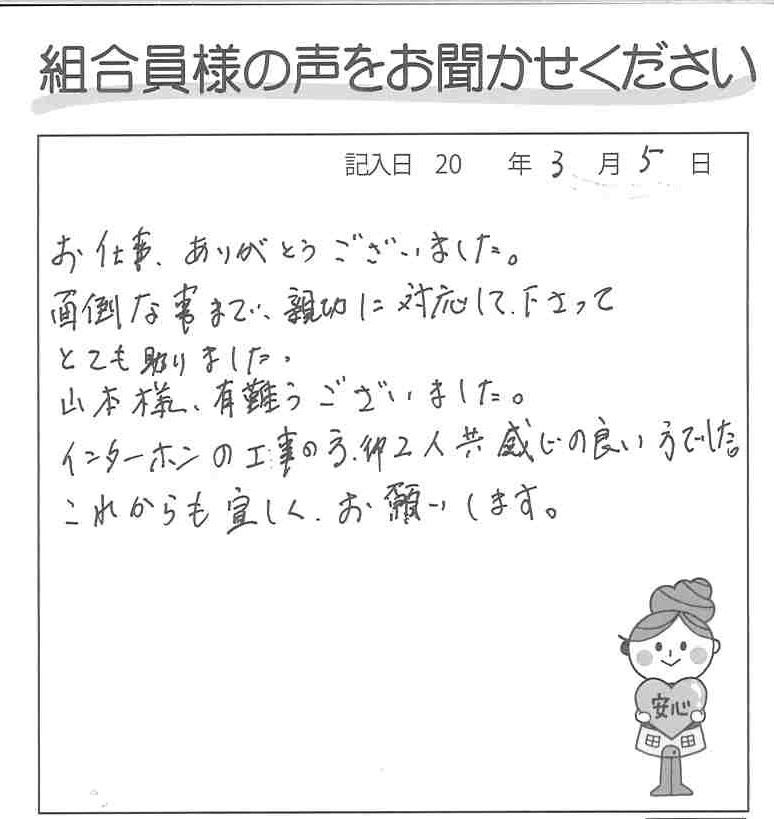 組合員様の声をお聞かせください
記入日 20 年 3 月 5 日
お仕事、ありがとうございました。
面倒な事まで、親切に対応して下さって
とても助りました。
山本様、有難うございました。
インターホンの工事の方、御2人共感じの良い方でした。
これからも宜しく、お願いします。
安心